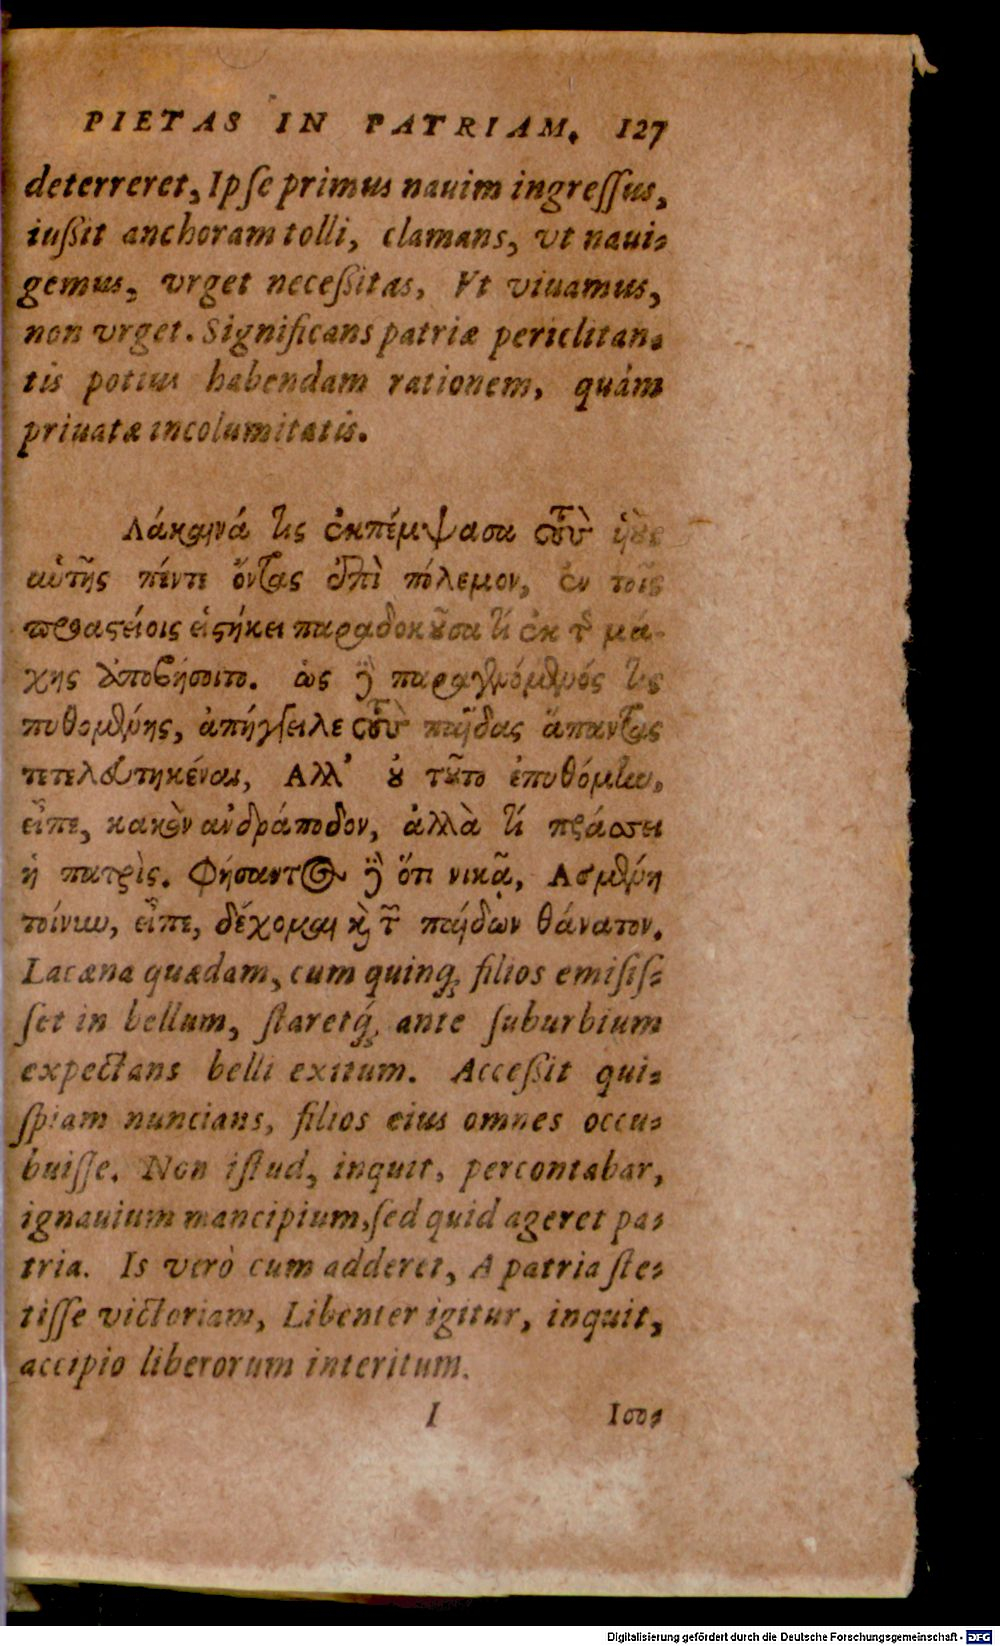 PIETAS IN PATRIAM. 127
deterreret, Ipse primus nauim ingressus,
iußit anchoram tolli, clamans, vt naui-
gemus, vrget neceßitas, Vt viuamus,
non vrget. Significans patriæ periclitan-
tis potius habendam rationem, quám
priuatæ incolumitatis.
Λάκαινά τις ἐκπέμψασα τοὺς ἡοὺς
αὑτῆς πέντε ὄντας ἐπὶ πόλεμον, ἐν τοῖς
προαστείοις εἱστήκει παραδοκοῦσα τί ἐκ τῆς μά-
χης ἀποβήσοιτο. ὡς δὲ παραγενόμενός τις
πυθομένης, ἀπήγγειλε τοὺς παῖδας ἅπαντας
τετελευτηκέναι, Αλλ' οὐ τοῦτο ἐπυθόμην,
εἶπε, κακὸν ἀνδράποδον, ἀλλὰ τί πράσσει
ἡ πατρὶς. Φήσαντος δὲ ὅτι νικᾷ, Ασμένη
τοίνυν, εἶπε, δέχομαι καὶ τὸν παίδων θάνατον.
Lacæna quædam, cum quinq; filios emisis-
set in bellum, staretq́; ante suburbium
expectans belli exitum. Acceßit qui-
spiam nuncians, filios eius omnes occu-
buisse. Non istud, inquit, percontabar,
ignauium mancipium, sed quid ageret pa-
tria. Is verò cum adderet, A patria ste-
tisse victoriam, Libenter igitur, inquit,
accipio liberorum interitum.
I Ισο-
Digitalisierung gefördert durch die Deutsche Forschungsgemeinschaft - DFG